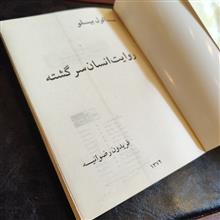 سال بیلو
روایت انسان سرگشته
فریدون رضوانیه
۱۳۷۲